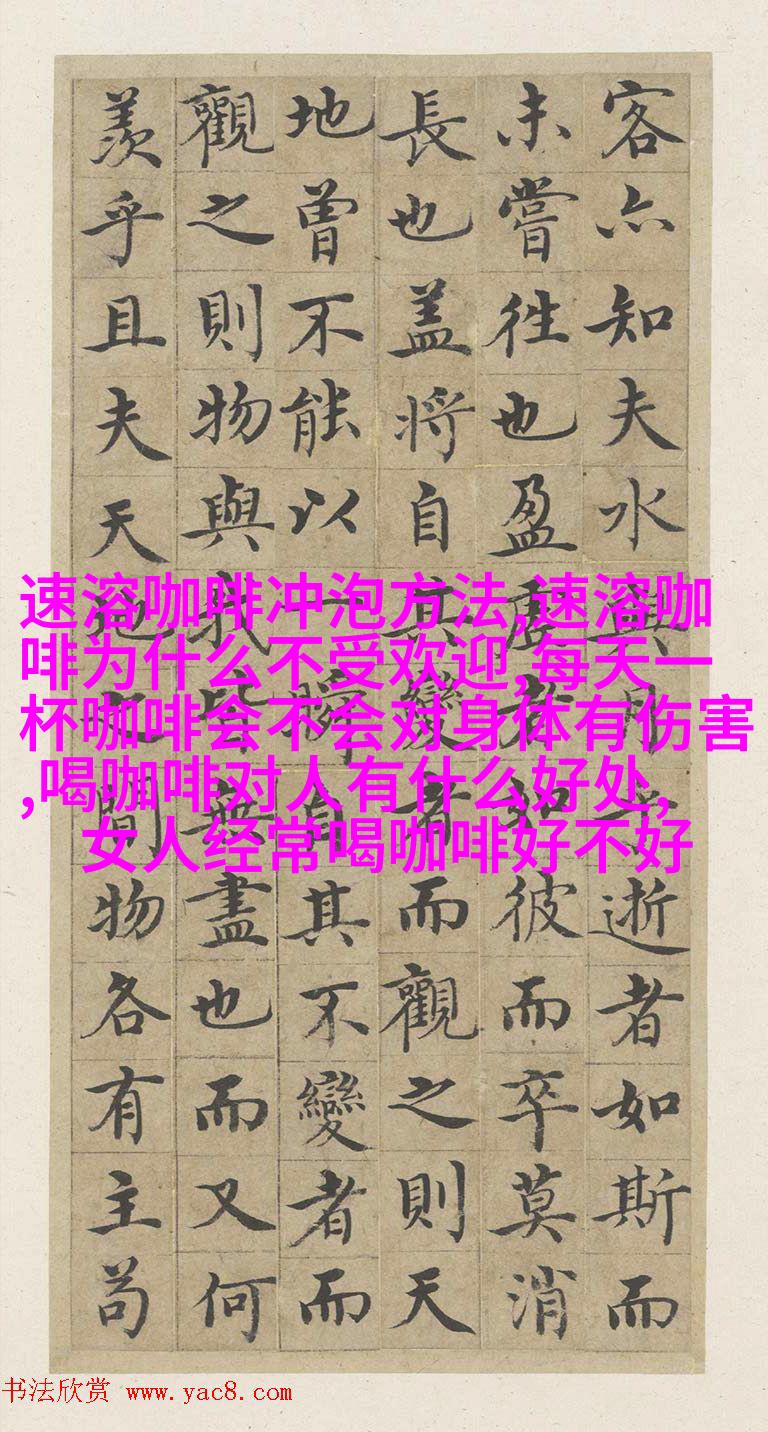 客亦知夫水與月乎逝者如斯而
未嘗往也盈虛者如彼而卒莫消
長也盖將自其變者而觀之則天
地曾不能以一瞬自其不變者而
觀之則物與我皆無盡也而又何
羨乎且夫天地之間物各有主苟
速溶咖啡冲泡方法,速溶咖
啡为什么不受欢迎,每天一
杯咖啡会不会对身体有伤害
,喝咖啡对人有什么好处,
女人经常喝咖啡好不好
书法欣赏 www.yac8.com